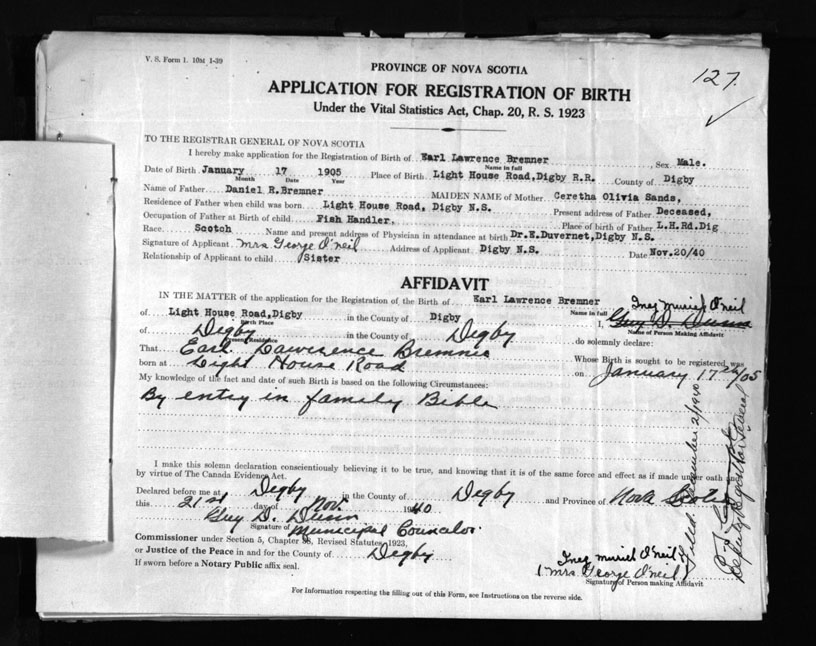 V. S. Form 1. 10M 1-39
127.
PROVINCE OF NOVA SCOTIA
APPLICATION FOR REGISTRATION OF BIRTH
Under the Vital Statistics Act, Chap. 20, R. S. 1923
TO THE REGISTRAR GENERAL OF NOVA SCOTIA
I hereby make application for the Registration of Birth of Earl Lawrence Bremner Sex Male.
Name in full
Date of Birth January 17 1905 Place of Birth Light House Road, Digby R.R. County of Digby
Month Date Year
Name of Father Daniel R. Bremner MAIDEN NAME of Mother Ceretha Olivia Sands,
Residence of Father when child was born Light House Road, Digby N.S. Present address of Father Deceased,
Occupation of Father at Birth of child Fish Handler, Place of birth of Father L.H.Rd.Dig
Race Scotch Name and present address of Physician in attendance at birth Dr.E.Duvernet, Digby N.S.
Signature of Applicant Mrs George O'neil Address of Applicant Digby N.S. Date Nov.20/40
Relationship of Applicant to child Sister
AFFIDAVIT
IN THE MATTER of the application for the Registration of the Birth of Earl Lawrence Bremner Inez Muriel O'neil
Name in full
of Light House Road, Digby in the County of Digby I, Guy D. Dunn
Birth Place Name of Person Making Affidavit
of Digby in the County of Digby do solemnly declare:
Present Residence
That Earl Lawerence Bremner Whose Birth is sought to be registered, was
born at Light House Road on January 17th/05
My knowledge of the fact and date of such Birth is based on the following Circumstances:
By entry in family Bible
I make this solemn declaration conscientiously believing it to be true, and knowing that it is of the same force and effect as if made under oath and
by virtue of The Canada Evidence Act.
Declared before me at Digby in the County of Digby and Province of Nova Scotia
this 21st day of Nov. 1940
Guy D. Dunn
Signature of Municipal Councalor.
Commissioner under Section 5, Chapter 38, Revised Statutes, 1923,
or Justice of the Peace in and for the County of Digby
If sworn before a Notary Public affix seal.
Inez Muriel O'neil
(Mrs George O'neil)
Signature of Person making Affidavit
For Information respecting the filling out of this Form, see Instructions on the reverse side.
Filed: December 2/1940
Deputy Registrar General